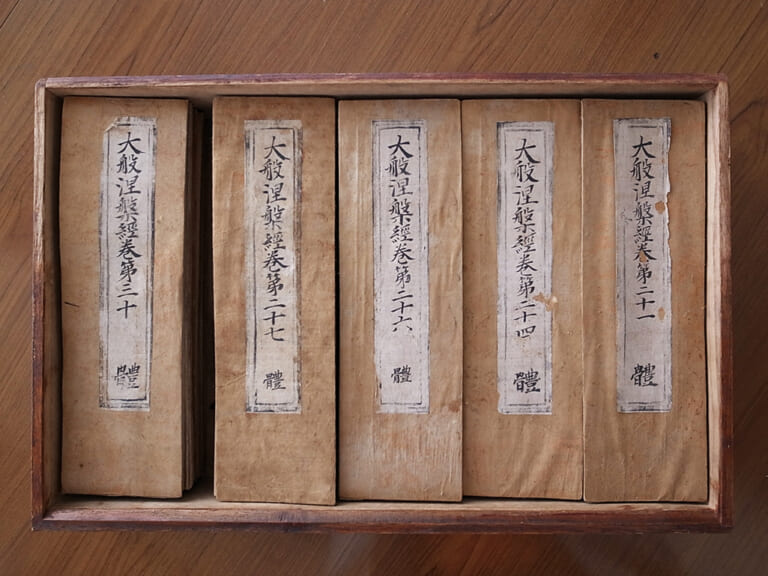 大般涅槃經卷第二十一
體
大般涅槃經卷第二十四
體
大般涅槃經卷第二十六
體
大般涅槃經卷第二十七
體
大般涅槃經卷第三十
體